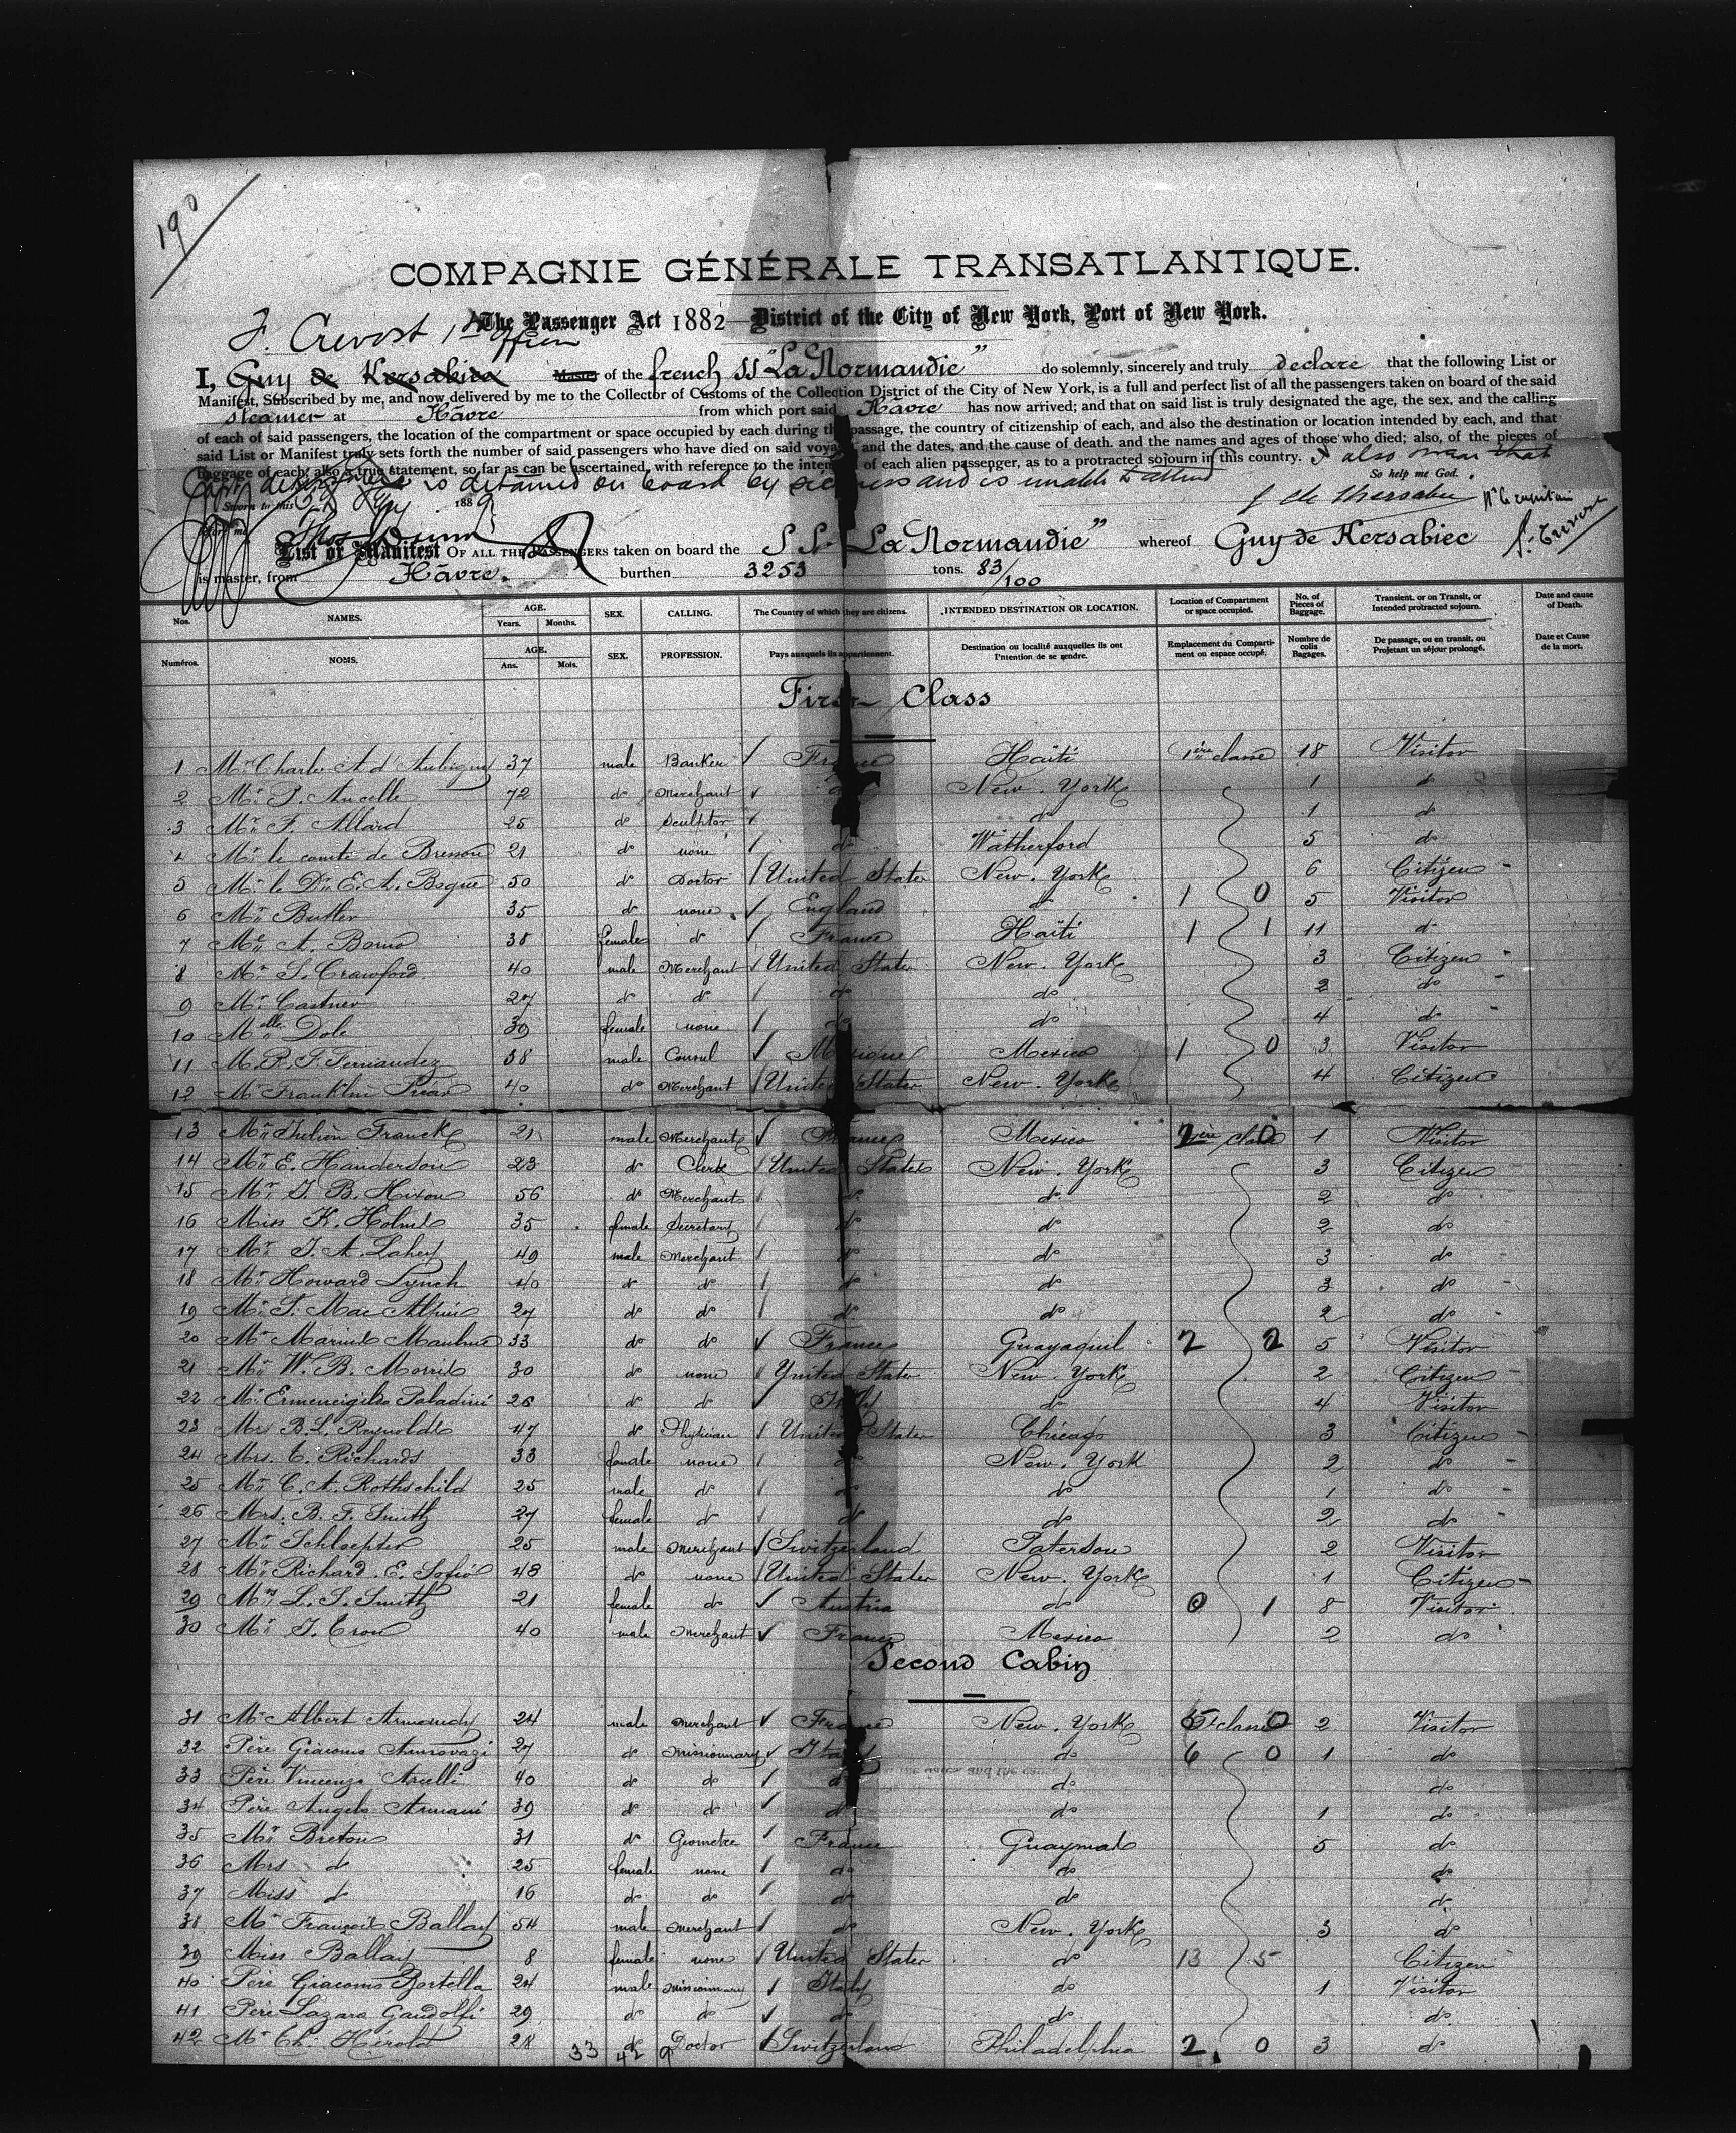 190
COMPAGNIE GÉNÉRALE TRANSATLANTIQUE.
The Passenger Act 1882 District of the City of New York, Port of New York.
F. Crevost 1st Officer
I, Guy de Kersabiec Master of the french SS "La Normandie" do solemnly, sincerely and truly declare that the following List or
Manifest, Subscribed by me, and now delivered by me to the Collector of Customs of the Collection District of the City of New York, is a full and perfect list of all the passengers taken on board of the said
steamer at Hâvre from which port said Hâvre has now arrived; and that on said list is truly designated the age, the sex, and the calling
of each of said passengers, the location of the compartment or space occupied by each during the passage, the country of citizenship of each, and also the destination or location intended by each, and that
said List or Manifest truly sets forth the number of said passengers who have died on said voyage, and the dates, and the cause of death. and the names and ages of those who died; also, of the pieces of
Baggage of each; also a true statement, so far as can be ascertained, with reference to the intention of each alien passenger, as to a protracted sojourn in this country. I also swear that
is detained on board by sickness and is unable to attend So help me God.
Sworn to this 1889
List or Manifest OF ALL THE PASSENGERS taken on board the SS "La Normandie" whereof Guy de Kersabiec
is master, from Hâvre. burthen 3253 tons. 83/100
Nos. NAMES. AGE. Years. Months. SEX. CALLING. The Country of which they are citizens. INTENDED DESTINATION OR LOCATION. Location of Compartment or space occupied. No. of Pieces of Baggage. Transient. or on Transit, or Intended protracted sojourn. Date and cause of Death.
Numéros. NOMS. AGE. Ans. Mois. SEX. PROFESSION. Pays auxquels ils appartiennent. Destination ou localité auxquelles ils ont l'intention de se rendre. Emplacement du Compartiment ou espace occupé. Nombre de colis Bagages. De passage, ou en transit, ou Projetant un séjour prolongé. Date et Cause de la mort.
First Class
1 Mr. Charles A. d'Aubigny 37 male Banker France Haïti 1ère classe 18 Visitor
2 Mr. P. Aucelle 72 do Merchant do New. York 1 do
3 Mr. F. Allard 25 do Sculptor do 1 do
4 Mr. le comte de Bresson 21 do none do Watherford 5 do
5 Mr. le Dr. E. A. Bogue 50 do Doctor United States New. York 6 Citizen
6 Mr. Butler 35 do none England do 1 0 5 Visitor
7 Me A. Borno 38 female do France Haïti 1 1 11 do
8 Mr. S. Crawford 40 male Merchant United States New. York 3 Citizen
9 Mr. Castner 27 do do do do 2 do
10 Melle Dole 39 female none do do 4 do
11 M. R. F. Fernandez 38 male Consul Mexique Mexico 1 0 3 Visitor
12 Mr Franklin 40 do Merchant United States New. York 4 Citizen
13 Mr. Julien Franck 21 male Merchant France Mexico 2 0 1 Visitor
14 Mr. E. Handerson 23 do Clerk United States New. York 3 Citizen
15 Mr. J. B. Hixon 56 do Merchant do do 2 do
16 Miss K. Holmes 35 female Secretary do do 2 do
17 Mr. J. A. Lahey 49 male Merchant do do 3 do
18 Mr. Howard Lynch 40 do do do do 3 do
19 Mr. F. Mac Alpine 27 do do do do 2 do
20 Mr Marius Maulme 33 do do France Guayaquil 2 2 5 Visitor
21 Mr. W. B. Morris 30 do none United States New. York 2 Citizen
22 Mr. Ermeneigilde Paladini 26 do do Italy do 4 Visitor
23 Mr B. L. Reynolds 47 do Physician United States Chicago 3 Citizen
24 Mrs. E. Richards 33 female none do New. York 2 do
25 Mr. C. A. Rothschild 25 male do do do 1 do
26 Mrs. B. F. Smith 27 female do do do 2 do
27 Mr. Schloepfer 25 male Merchant Switzerland Paterson 2 Visitor
28 Mr. Richard. E. 48 do none United States New. York 1 Citizen
29 Mrs L. S. Smith 21 female do Austria do 0 1 8 Visitor
30 Mr. J. Eron 40 male Merchant France Mexico 2 do
Second Cabin
31 Mr Albert Armandy 24 male Merchant France New. York 5 classe 0 2 Visitor
32 Père Giacomo 27 do Missionnary Italy do 6 0 1 do
33 Père Vincenzo Arcelli 40 do do do do do
34 Père Angelo Armani 39 do do do do 1 do
35 Mr. Breton 31 do Geometre France Guaymas 5 do
36 Mrs do 25 female none do do do
37 Miss do 16 do do do do do
38 Mr François Ballay 54 male Merchant do New. York 3 do
39 Miss Ballay 8 female none United States do 13 5 Citizen
40 Père Giacomo Bortella 24 male Missionnary Italy do 1 Visitor
41 Père Lazaro Gandolfi 29 do do do do do
42 Mr Ch. Hérold 28 do Doctor Switzerland Philadelphia 2 0 3 do
33 42 9